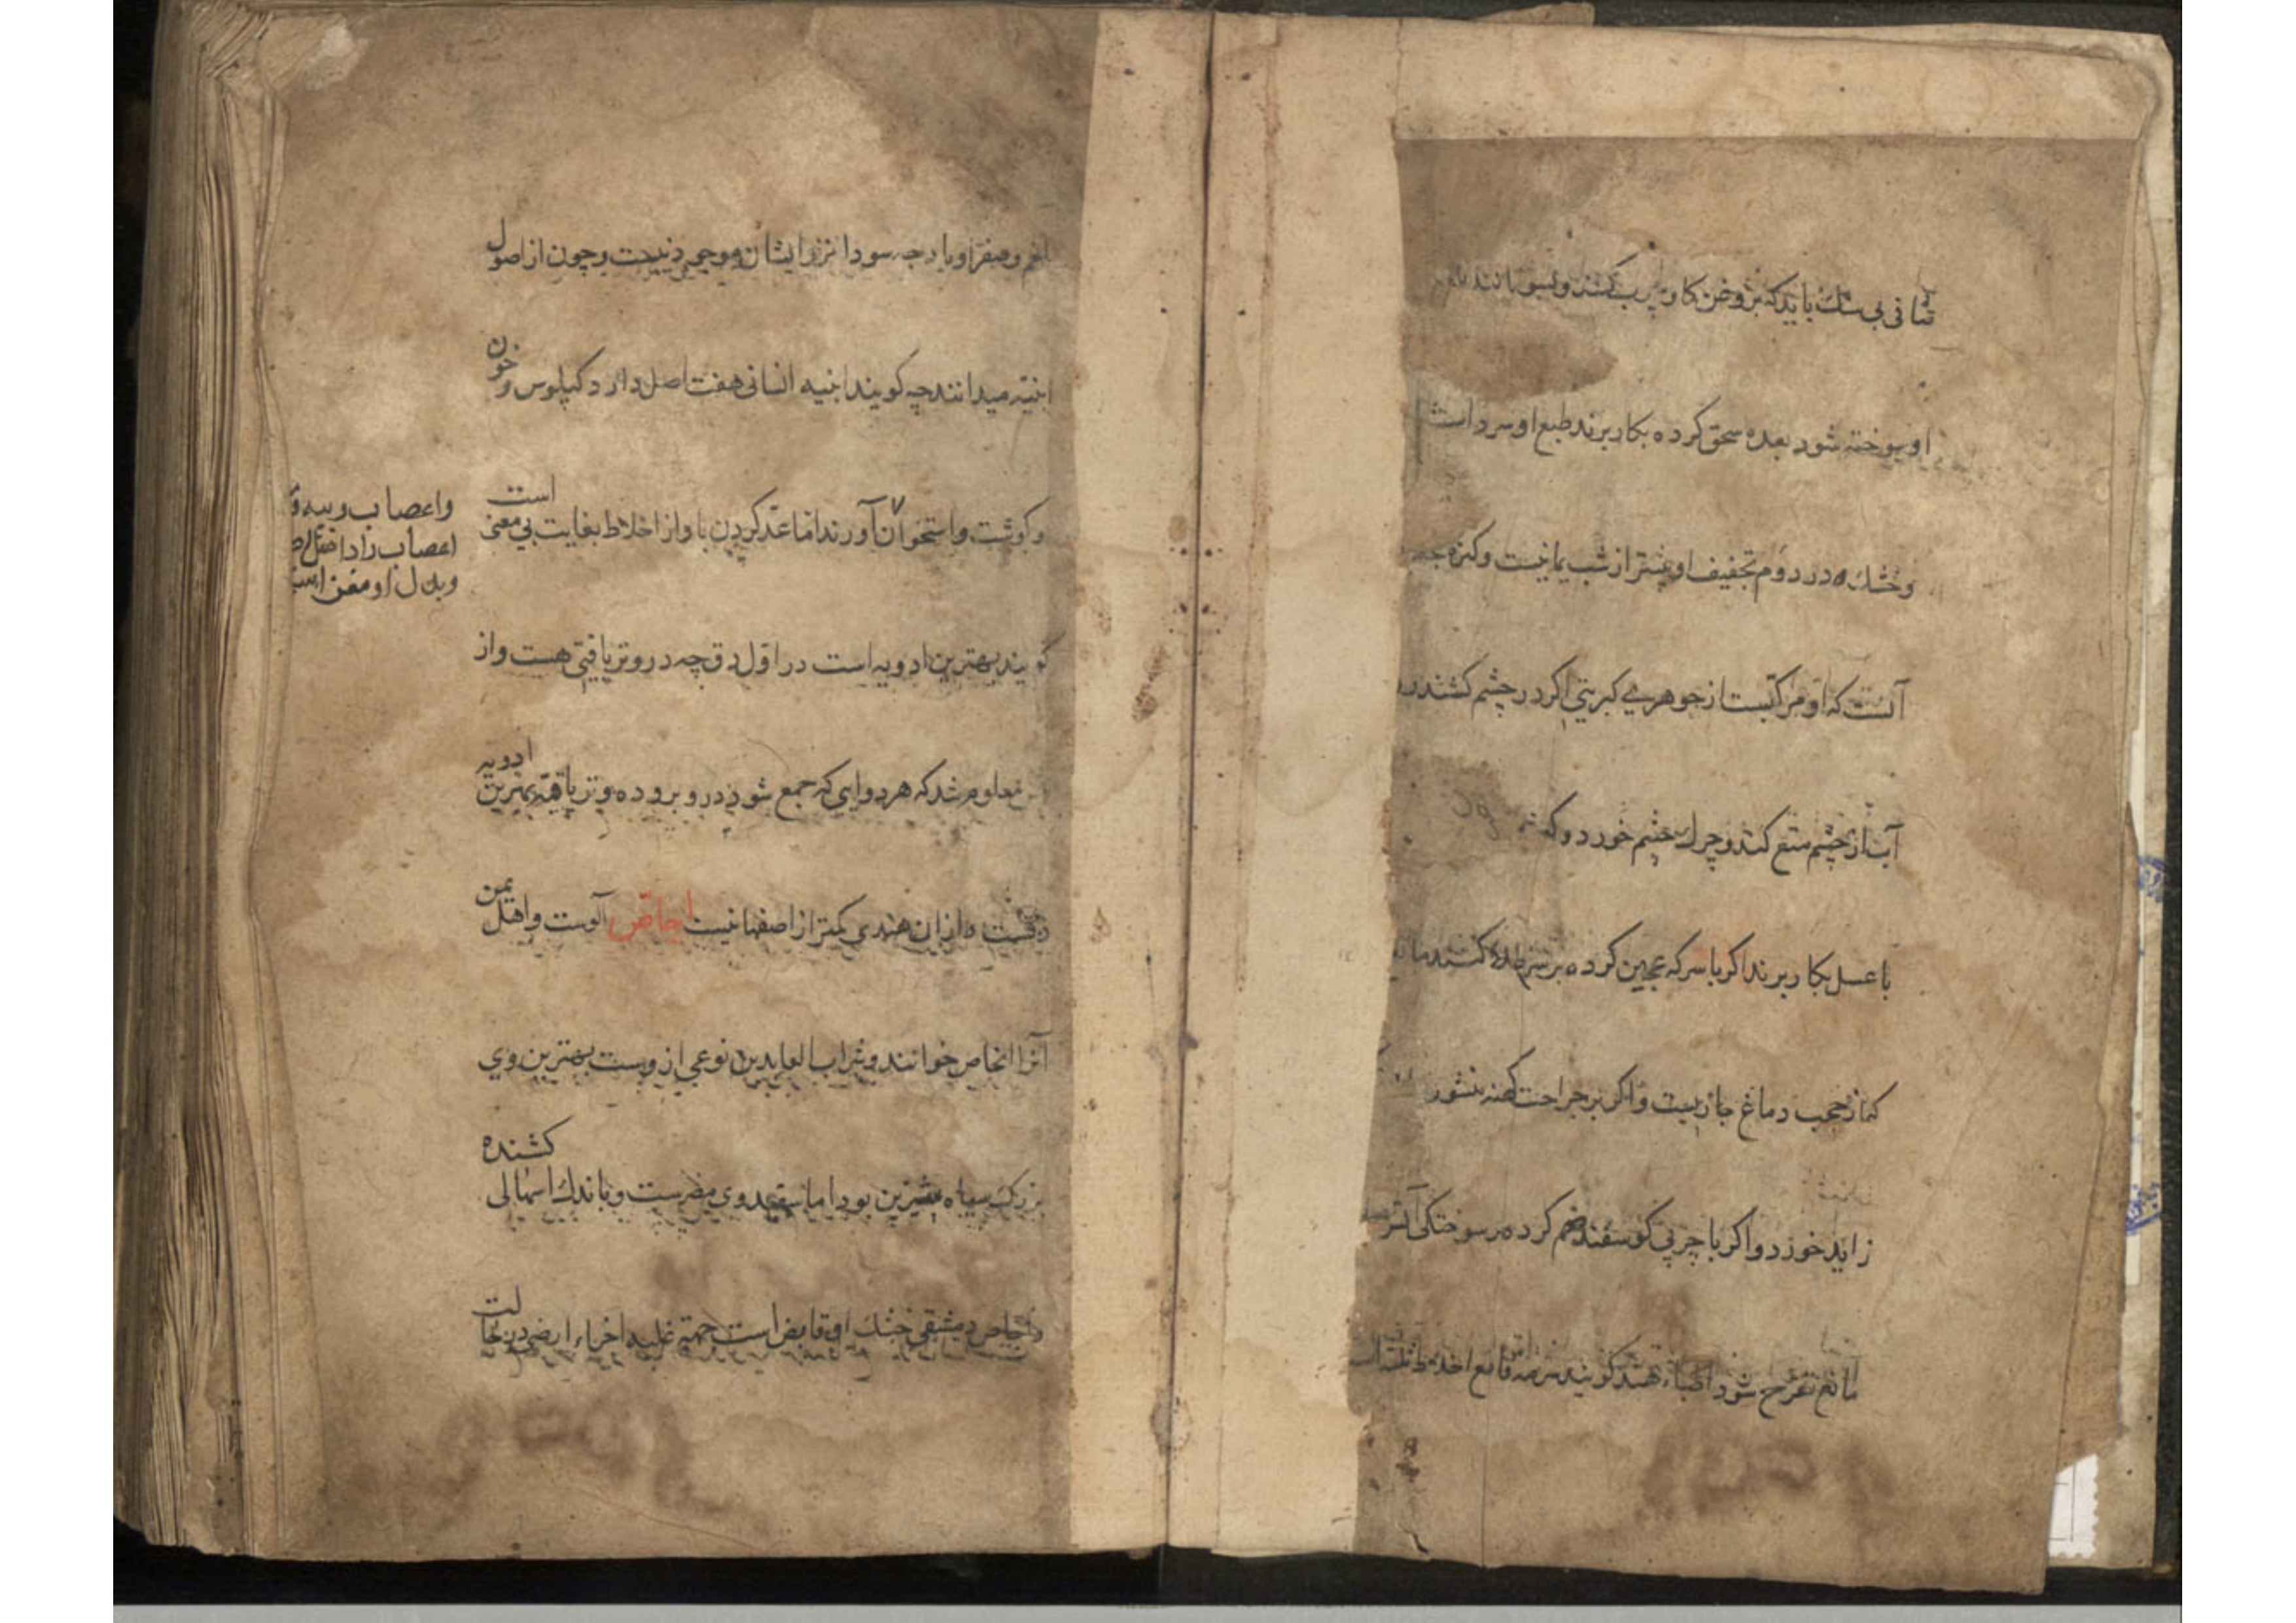 ثنا فی بی سنك باید که بروغن کاو چرب کنند و بسوزانند
او سوخته شود بعده سحق کرده بکار برند طبع او سرد است
وخشك در دوم تجفیف او بیشتر از شب یمانیست و کنزه
آنست که او مرکبست از جوهری کبریتی اکر در چشم کشند
آب از چشم منع کند و چرك چشم خورد و که
با عسل بکار برند اکر با سرکه عجین کرده بر سر طلا کنند
که از حجب دماغ جاریست و اکر بر جراحت کهنه
زاید خورد و اکر با چربی کوسفند ضم کرده بر سوختکی آتش
مانع تقرح شود اطباء هند کویند سرمه قامع اخلاط ثلثه
بلغم و صفرا و باد چه سودا نزد ایشان موجود نیست و چون از اصول
ابنیه میدانند چه کویند ابنیه انسانی هفت اصل دارد کیلوس و خون
و کوشت و استخوان آورند اما عد کردن باو از اخلاط بغایت بی معنی است
واعصاب وپیه و
اعصاب را داخل
وبدل او
کویند بهترین ادویه است در اول دق چه درو تریاقتی هست و از
معلوم شد که هر دوایی که جمع شود درو بروده و تریاقیة بهترین ادویه
دقست و ازان هندی کمتر از اصفهانیست اجاص آلوست و اهل یمن
آنرا انجاص خوانند و شراب العابدین نوعی از وست بهترین وی
بزرك سیاه شیرین بود اما سفید وی مضرست و باندك اسهالی کشنده
و اجاص دمشقی خشك او قابض است جهة غلبه اجزاء ارضی دران حالت